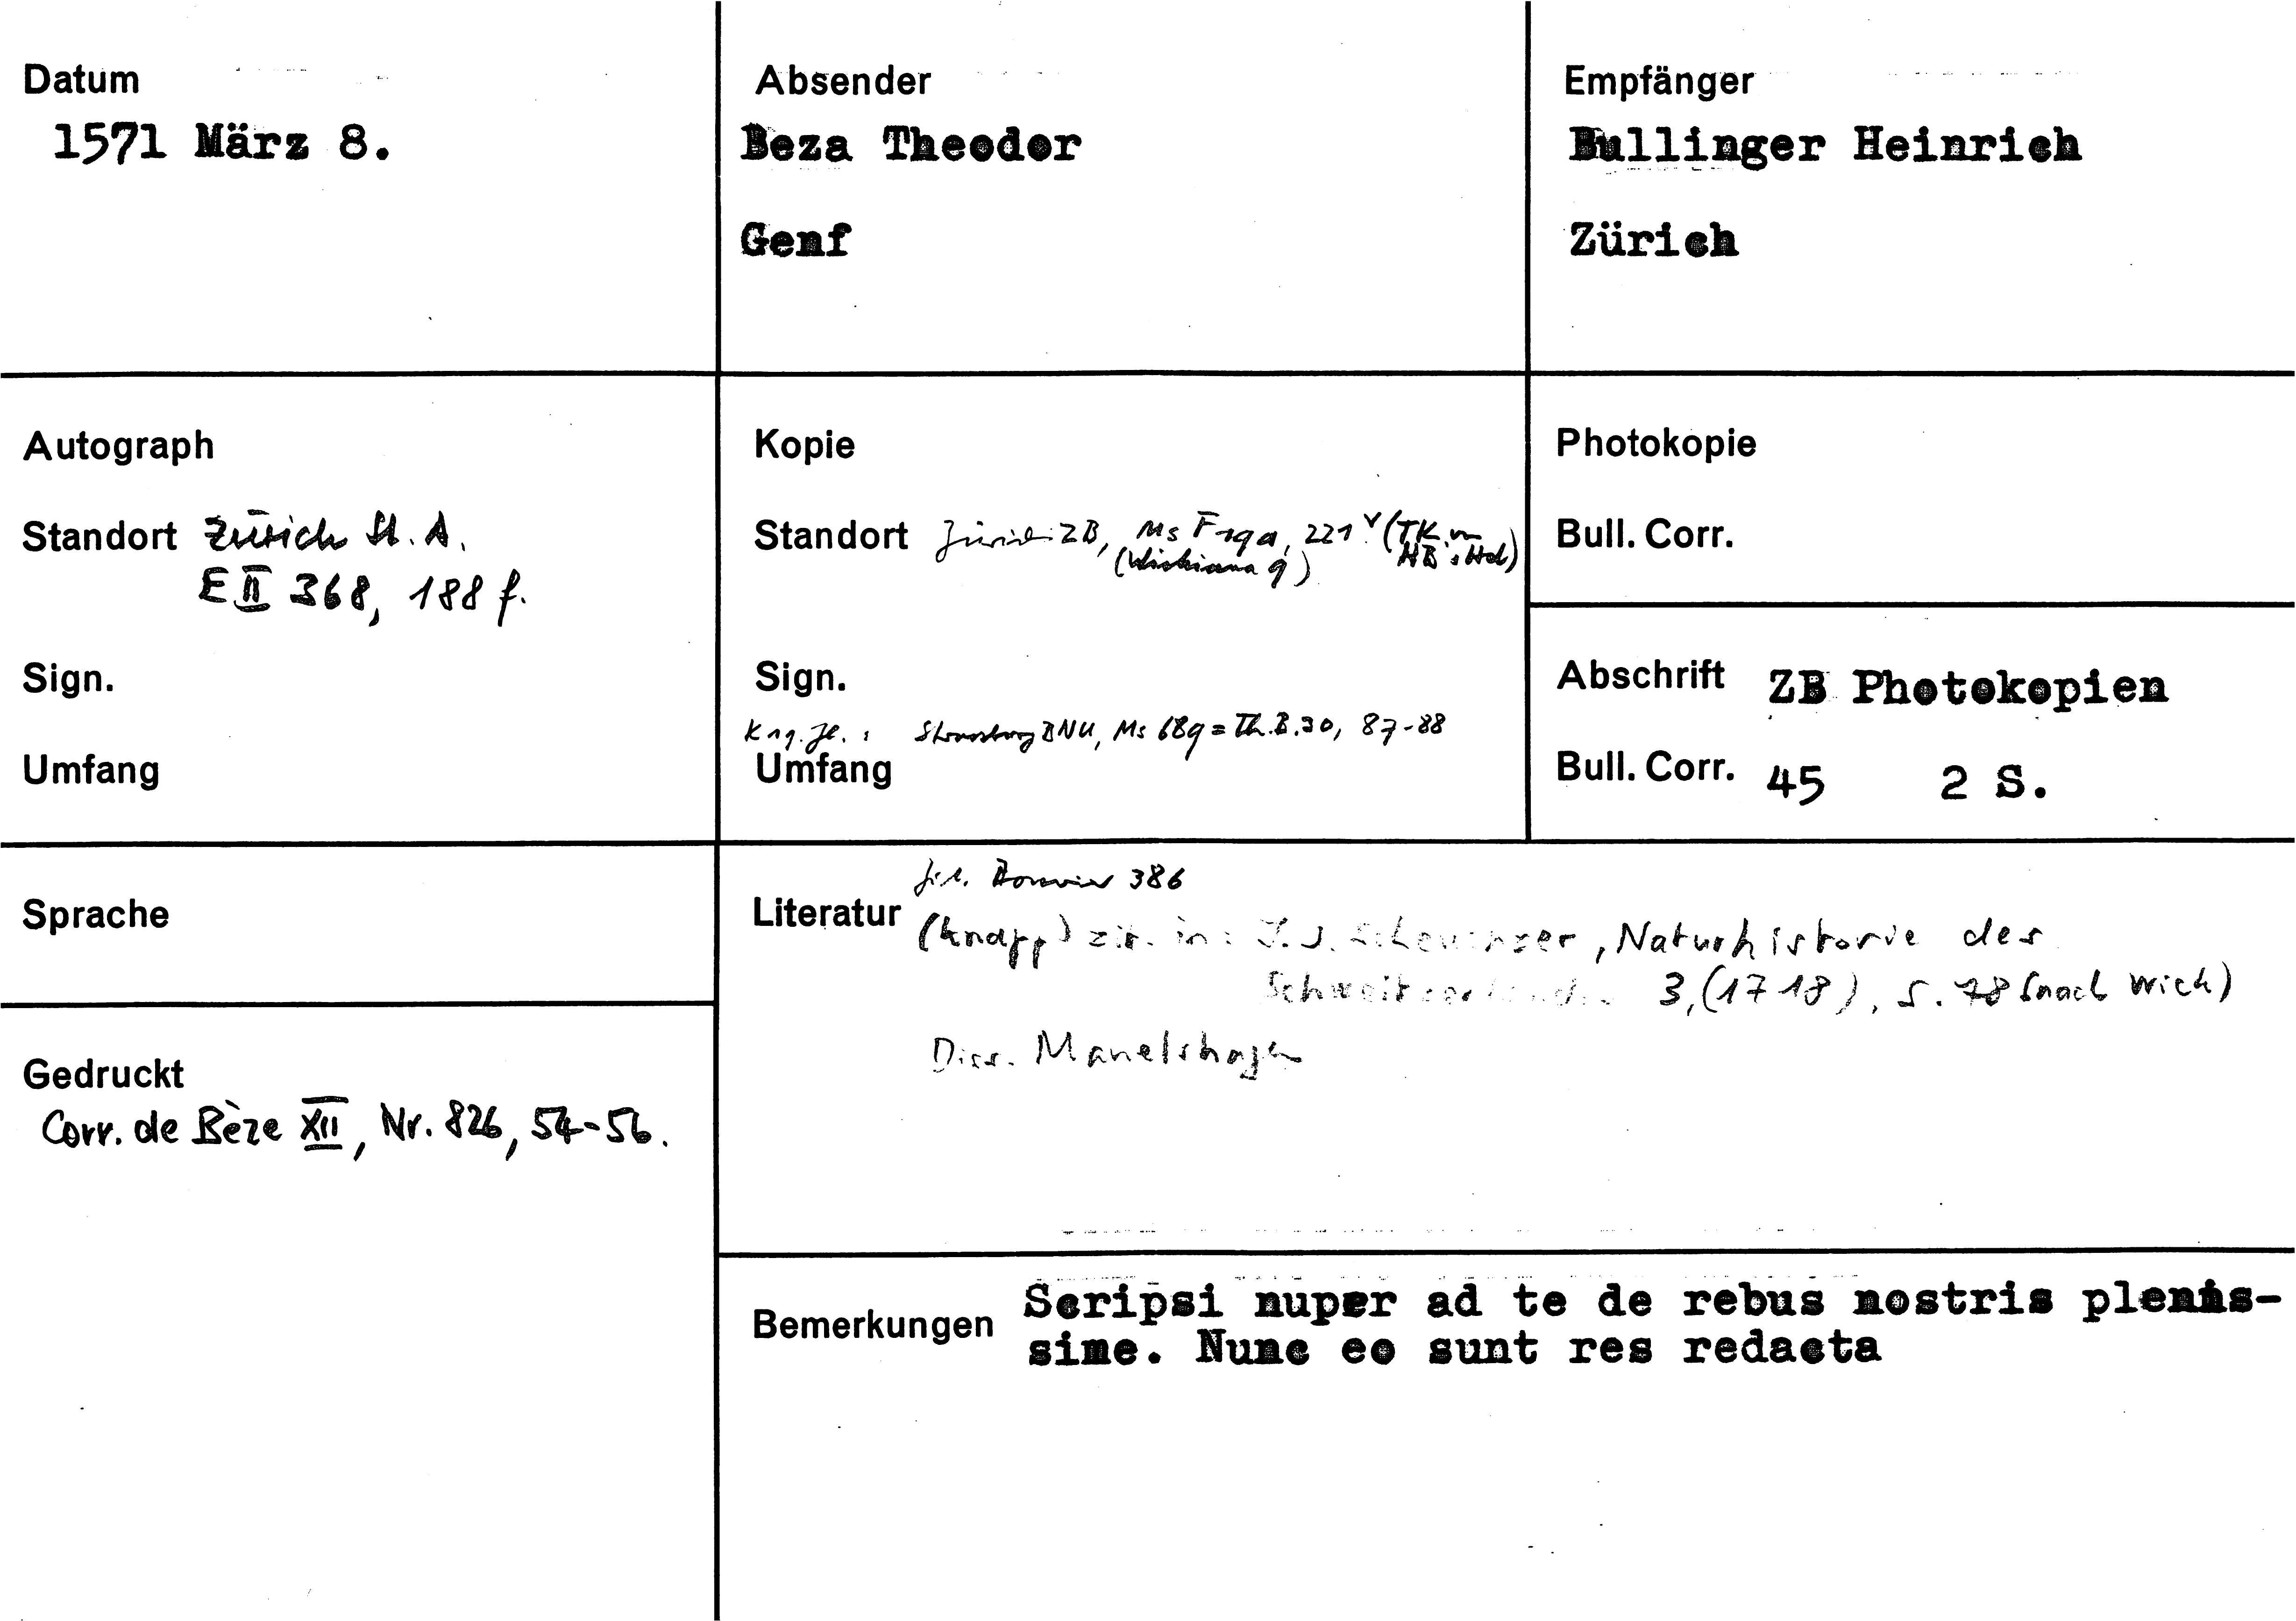 Datum
1571 März 8.
Absender
Beza Theodor
Genf
Empfänger
Bullinger Heinrich
Zürich
Autograph
Standort Zürich St. A.
E II 368, 188 f.
Sign.
Umfang
Kopie
Standort Zürich ZB, Ms F 19a, 221 v (TK v.
(Wickiana 9) HB's Hd)
Sign.
K 19. Jh.: Strassburg BNU, Ms 689 = Th.B.30, 87-88
Umfang
Photokopie
Bull. Corr.
Abschrift ZB Photokopien
Bull. Corr. 45 2 S.
Sprache
Gedruckt
Corr. de Bèze XII, Nr. 826, 54-56.
386
Literatur (knapp) zit. in: J. J. Scheuchzer, Naturhistorie des
Schweitzerlands. 3, (1718), S. 78 (nach Wick)
Diss. Mauelshagen
Bemerkungen Scripsi nuper ad te de rebus nostris plenis-
sime. Nunc eo sunt res redacta